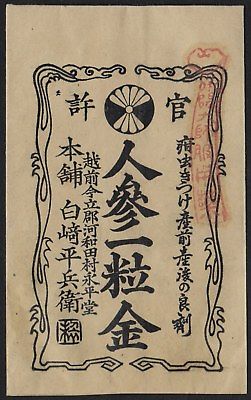 官許
疳虫きつけ産前産後の良剤
人參一粒金
越前今立郡河和田村永平堂
本舗 白﨑平兵衛